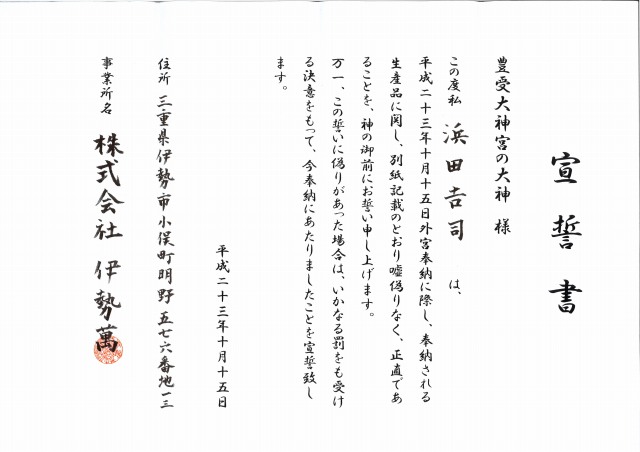 宣誓書
豊受大神宮の大神 様
この度私 浜田吉司 は、
平成二十三年十月十五日外宮奉納に際し、奉納される
生産品に関し、別紙記載のとおり嘘偽りなく、正直であ
ることを、神の御前にお誓い申し上げます。
万一、この誓いに偽りがあった場合は、いかなる罰をも受け
る決意をもって、今奉納にあたりましたことを宣誓致し
ます。
平成二十三年十月十五日
住所 三重県伊勢市小俣町明野 五七六番地一三
事業所名 株式会社 伊勢萬